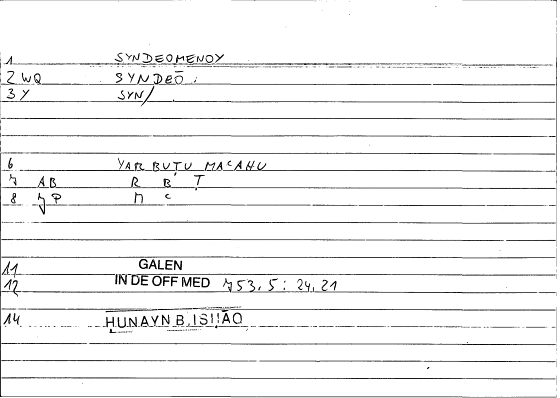 1 SYNDEOMENOY
2 WQ SYNDEŌ
3 Y SYN/
6 YARBUṬU MAᶜAHU
7 AB R B Ṭ
8 JP M ᶜ
11 GALEN
12 IN DE OFF MED 753,5 : 24,21
14 ḤUNAYN B. ISḤĀQ